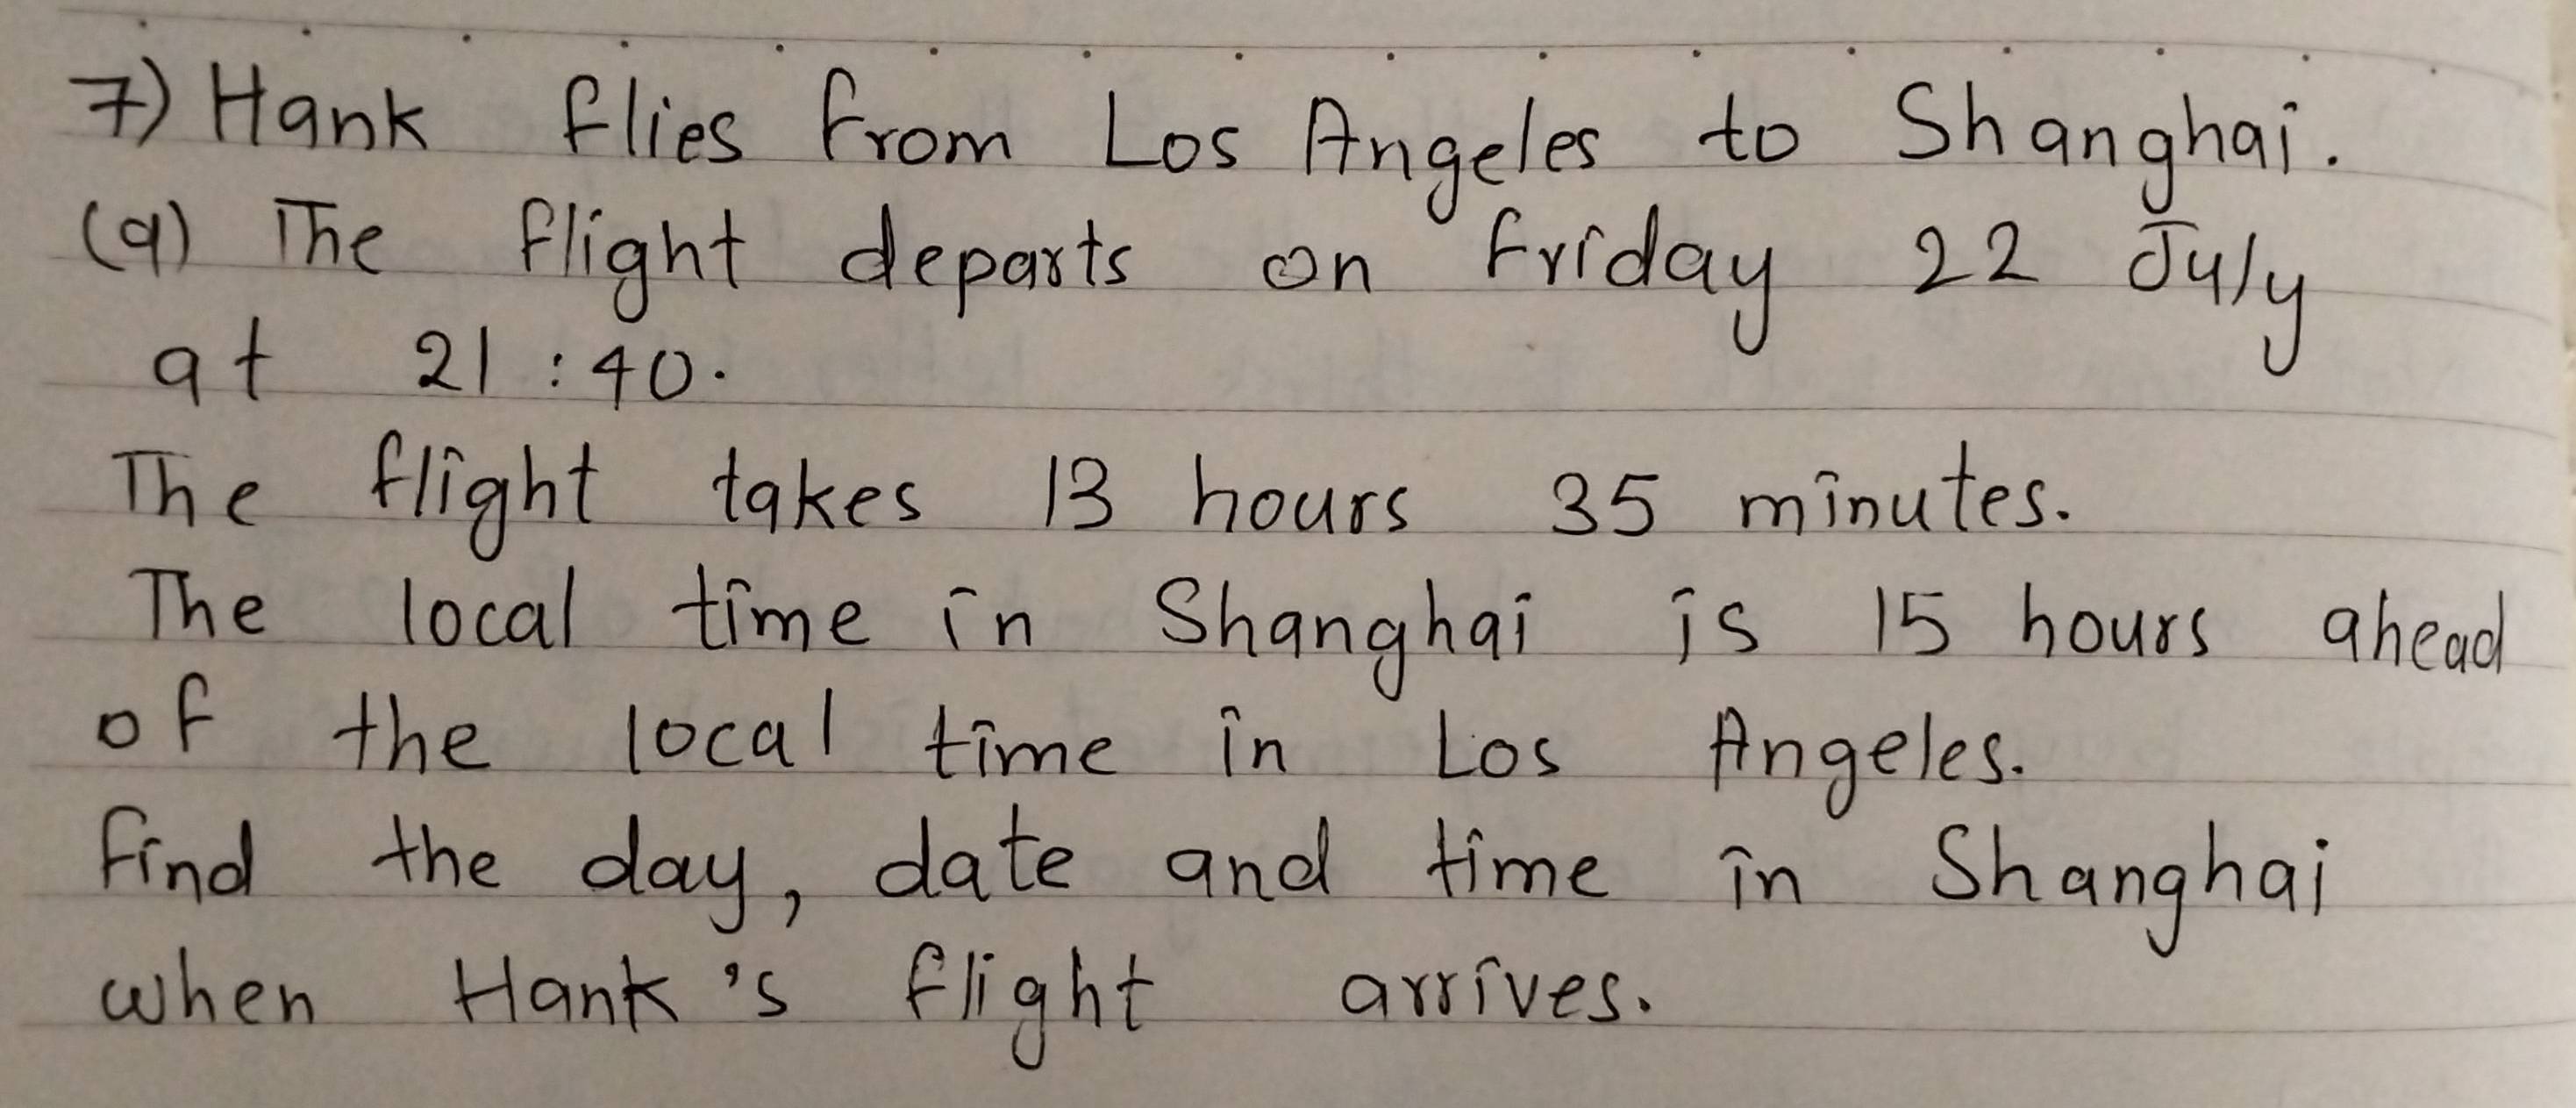 7) Hank flies from Los Angeles to Shanghai.
(a) The flight departs on Friday 22 July
at 21:40.
The flight takes 13 hours 35 minutes.
The local time in Shanghai is 15 hours ahead
of the local time in Los Angeles.
Find the day, date and time in Shanghai
when Hank's flight arrives.